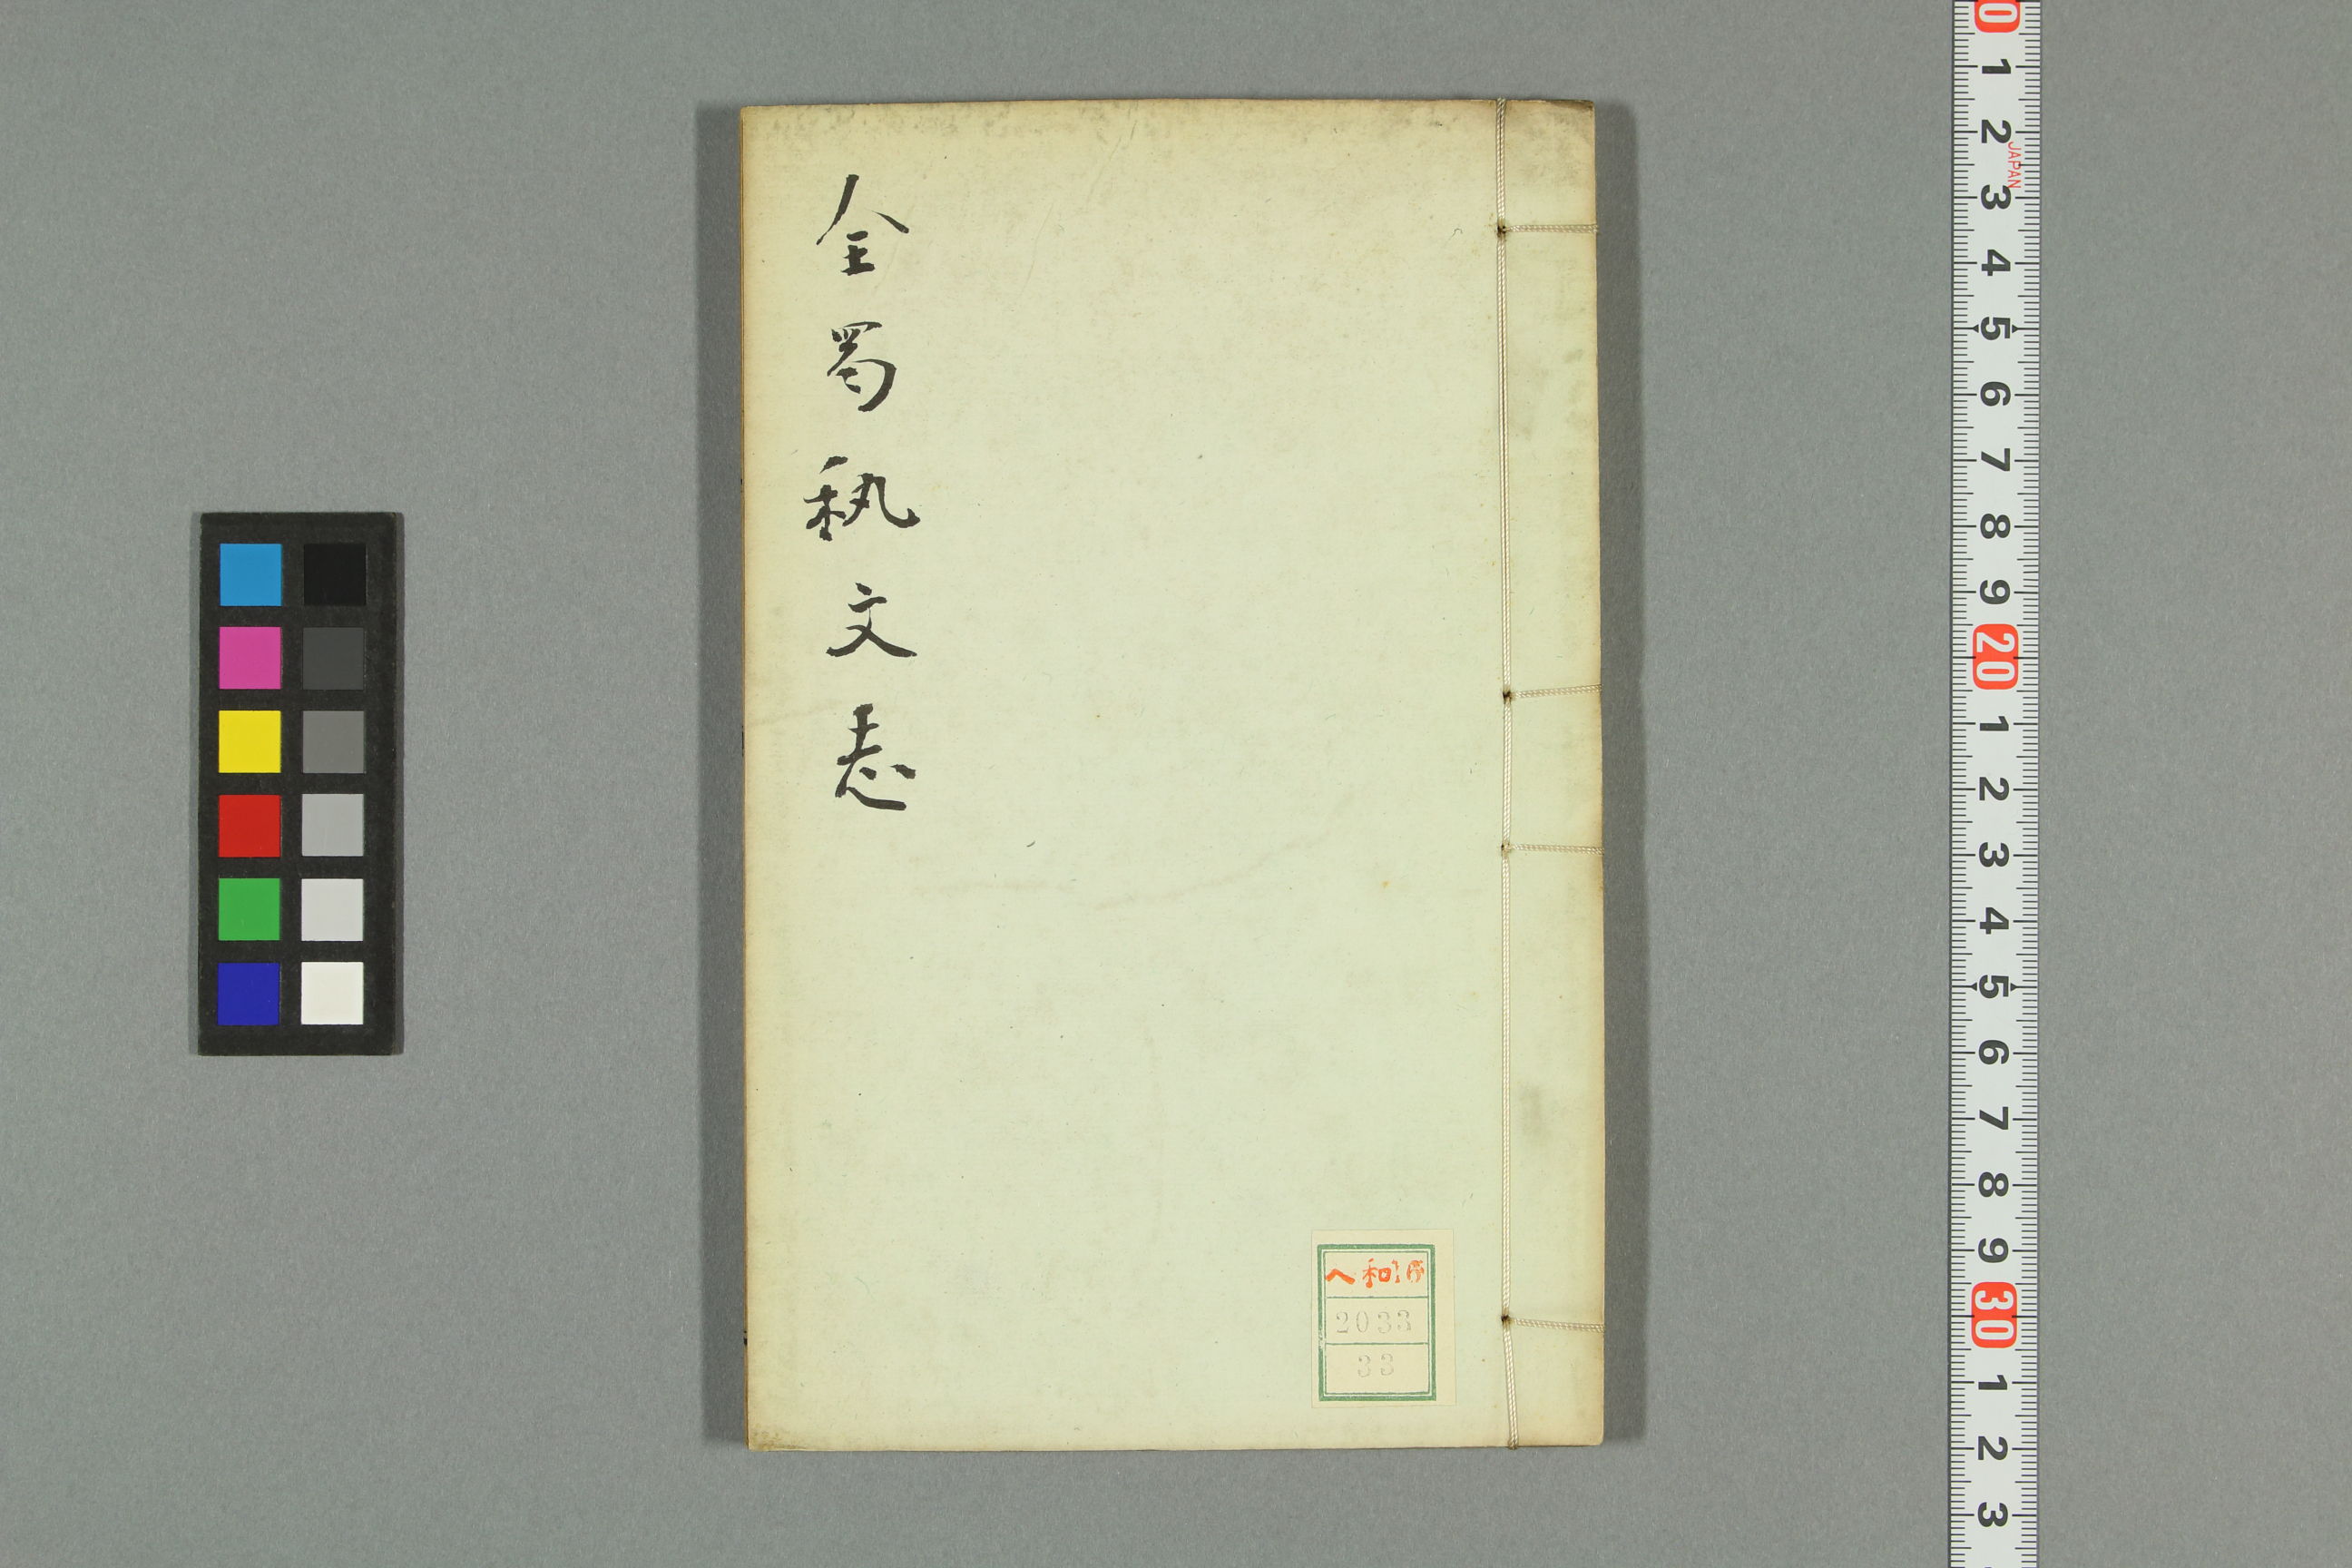 全蜀秇文志
ヘ和16
2033
33
0 1 2 3 4 5 6 7 8 9 20 1 2 3 4 5 6 7 8 9 30 1 2 3
JAPAN